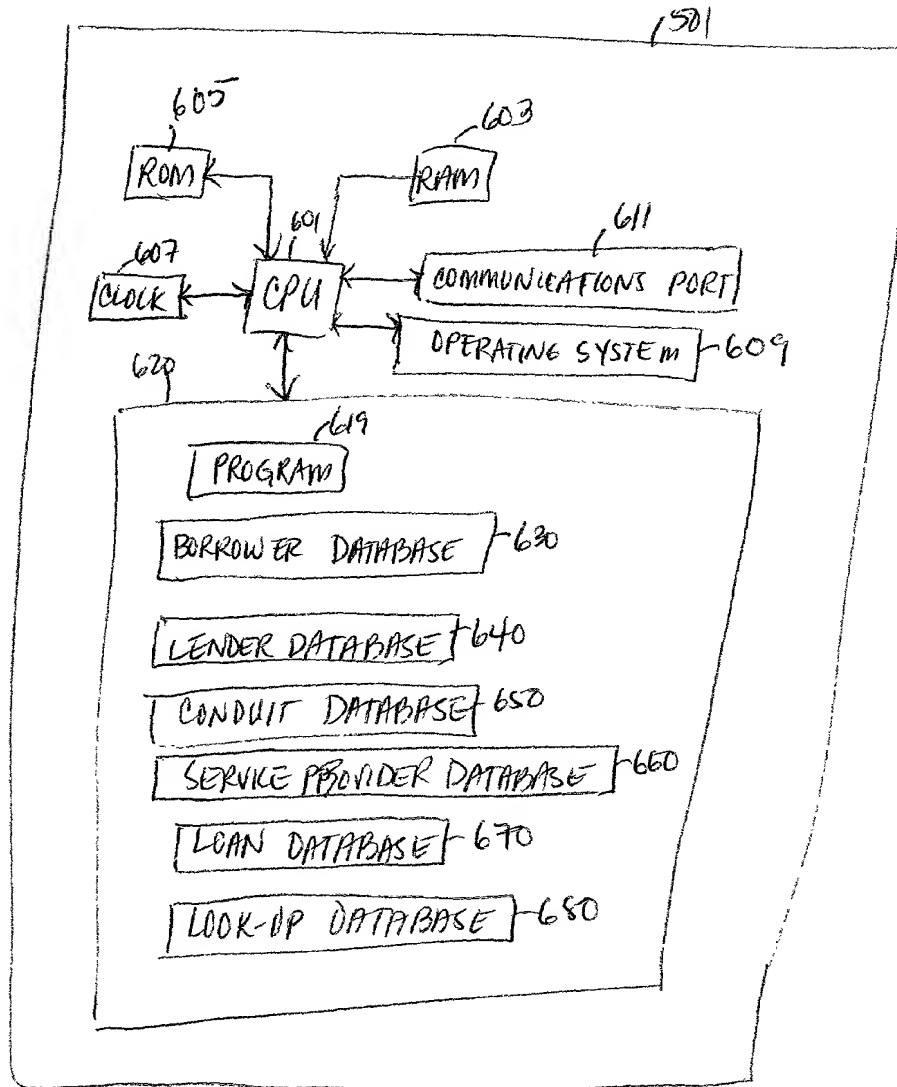 501
605
603
ROM
RAM
611
601
607
CPU
COMMUNICATIONS PORT
CLOCK
OPERATING SYSTEM
609
620
619
PROGRAM
BORROWER DATABASE
630
LENDER DATABASE
640
CONDUIT DATABASE
650
SERVICE PROVIDER DATABASE
660
LOAN DATABASE
670
LOOK-UP DATABASE
680